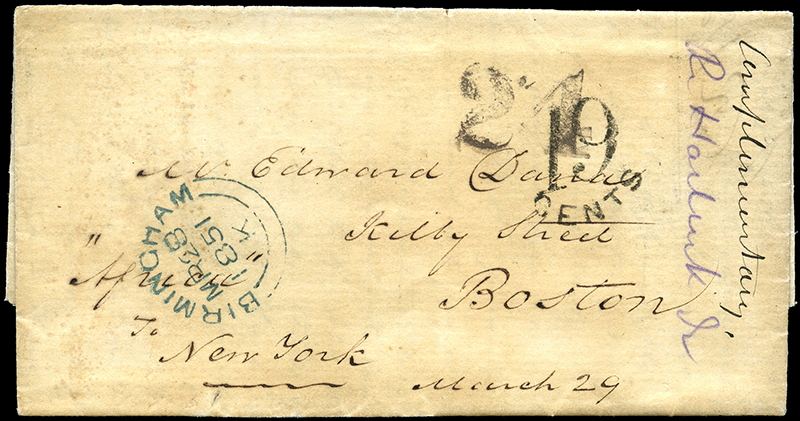 24
19
CENTS
Mr Edward Dana
Kilby Street
Boston
"Africa"
To
New York
March 29
BIRMINGHAM
MR 28
1851
K
Complimentary,
R. Jr